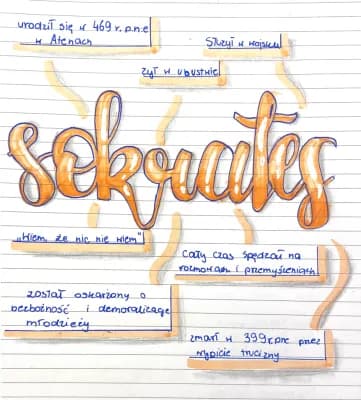 urodził się w 469 r. p.n.e
w Atenach
Służył w wojsku
żył w ubustwie
sokrates
„Wiem, że nic nie wiem"
Cały czas spędzał na
rozmowach i przemyśleniach
został oskarżony o
bezbożność i demoralizację
młodzieży
zmarł w 399 r. pne przez
wypicie trucizny